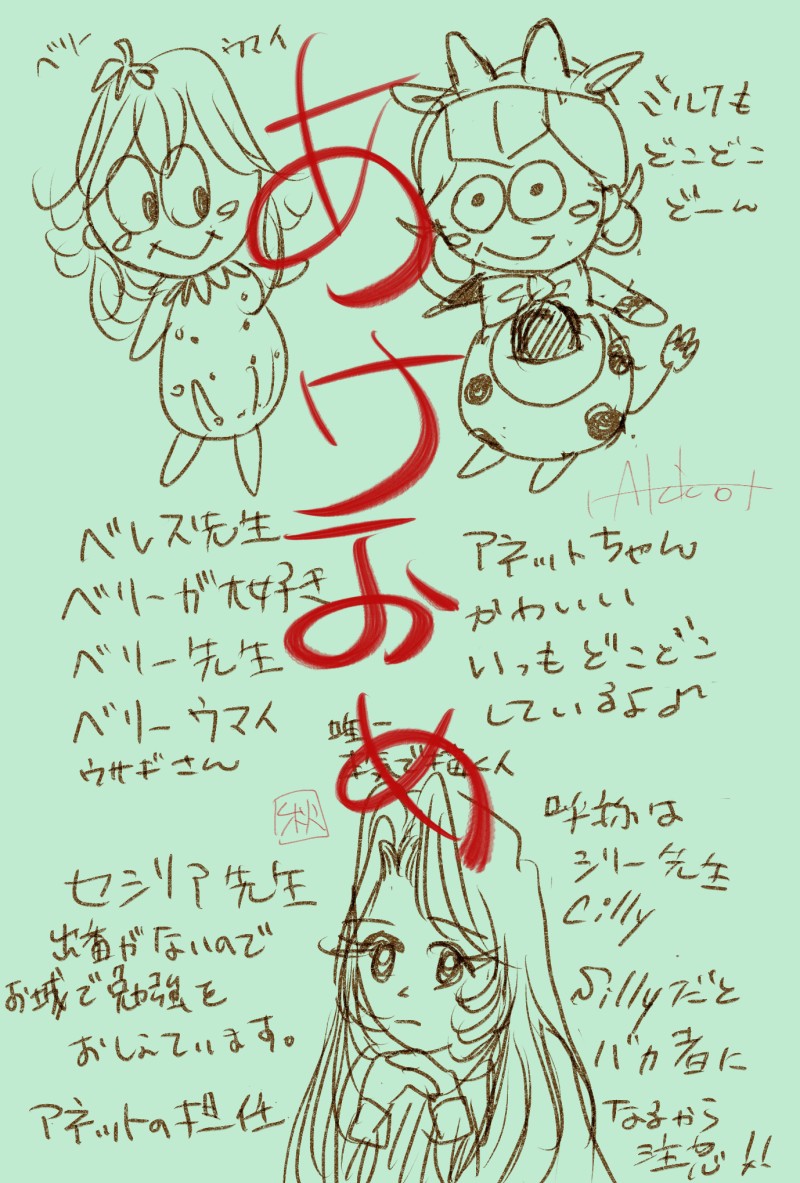 ベリー
ウマイ
ミルクも
どこどこ
どーん
あけおめ
ベレズ先生
ベリーが大好き
ベリー先生
ベリーウマイ
ウサギさん
アネットちゃん
かわいい
いつもどこどこ
しているよ♪
唯一
本気で描く人
秋
セジリア先生
出番がないので
お城で勉強を
おしえています。
アネットの担任
呼称は
シリー先生
Cilly
Sillyだと
バカ者に
なるから
注意!!